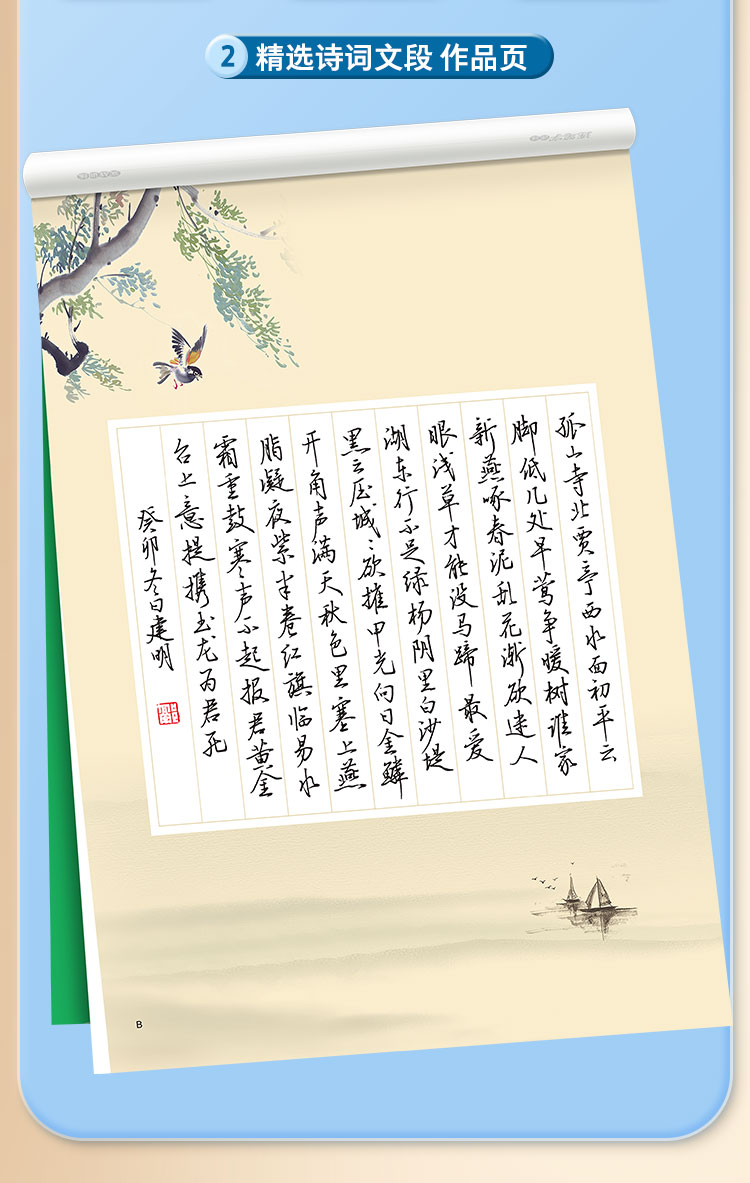 2 精选诗词文段 作品页
孤山寺北贾亭西水面初平云
脚低几处早莺争暖树谁家
新燕啄春泥乱花渐欲迷人
眼浅草才能没马蹄最爱
湖东行不足绿杨阴里白沙堤
黑云压城〻欲摧甲光向日金鳞
开角声满天秋色里塞上燕
脂凝夜紫半卷红旗临易水
霜重鼓寒声不起报君黄金
台上意提携玉龙为君死
癸卯冬日建明
B